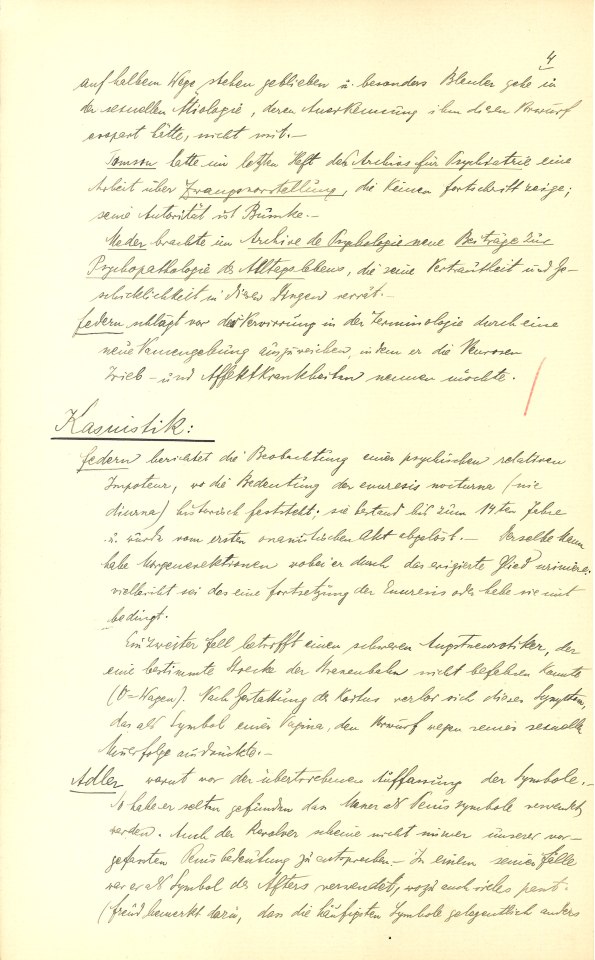 4
auf halbem Wege stehen geblieben u. besonders Bleuler gehe in
der sexuellen Ätiologie, deren Anerkennung ihm diesen Vorwurf
erspart hätte, nicht mit.—
Tomson hatte im letzten Heft des Archivs für Psychiatrie eine
Arbeit über Zwangsvorstellung, die keinen Fortschritt zeige;
seine Autorität ist Bumke.—
Meder brachte im Archive de Psychologie neue Beiträge zur
Psychopathologie des Alltagslebens, die seine Vertrautheit und Ge-
schicklichkeit in diesen Dingen verrät.—
Federn schlägt vor der Verwirrung in der Terminologie durch eine
neue Namengebung auszuweichen, indem er die Neurosen
Trieb- und Affektkrankheiten nennen möchte.
Kasuistik:
Federn berichtet die Beobachtung einer psychischen relativen
Impotenz, wo die Bedeutung der enuresis nocturna (nie
diurna) historisch feststeht; sie bestand bis zum 14ten Jahre
u. wurde vom ersten onanistischen Akt abgelöst.— Derselbe Mann
habe Morgenerektionen wobei er durch das erigierte Glied uriniere;
vielleicht sei das eine Fortsetzung der Enuresis oder habe sie mit
bedingt.
Ein zweiter Fall betrifft einen schweren Angstneurotiker, der
eine bestimmte Strecke der Strassenbahn nicht befahren konnte
(V=Wagen). Nach Gestattung des Koitus verlor sich dieses Symptom,
das als Symbol einer Vagina, den Vorwurf wegen seines sexuellen
Misserfolge ausdrückte.—
Adler warnt vor der übertriebenen Auffassung der Symbole.—
So habe er selten gefunden dass Messer als Penissymbole verwendet
werden. Auch der Revolver scheine nicht immer unserer vor-
gefassten Penisbedeutung zu entsprechen— In einem seiner Fälle
war er als Symbol des Afters verwendet, wozu auch vieles passt.
(Freud bemerkt dazu, dass die häufigsten Symbole gelegentlich anders